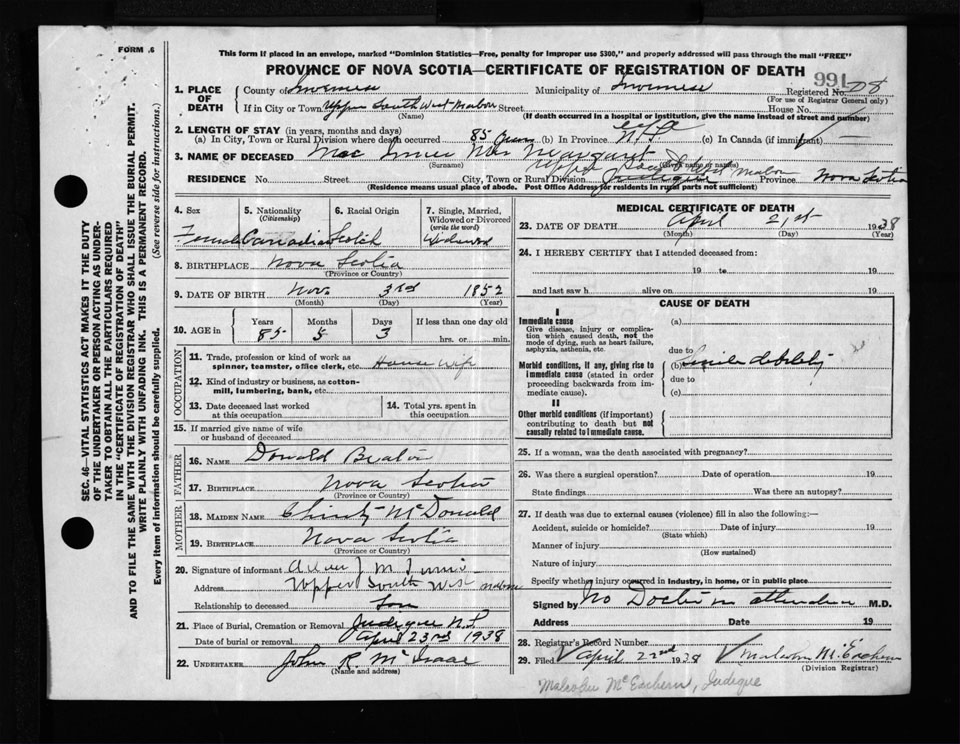 FORM 6
This form if placed in an envelope, marked "Dominion Statistics—Free, penalty for improper use $300," and properly addressed will pass through the mail "FREE"
PROVINCE OF NOVA SCOTIA—CERTIFICATE OF REGISTRATION OF DEATH
991
1. PLACE OF DEATH
County of Inverness Municipality of Inverness Registered No. 08
(For use of Registrar General only)
If in City or Town Upper South West Mabou Street House No.
(Name) (If death occurred in a hospital or institution, give the name instead of street and number)
2. LENGTH OF STAY (in years, months and days)
(a) In City, Town or Rural Division where death occurred 85 Years (b) In Province (c) In Canada (if immigrant)
3. NAME OF DECEASED Mac Innis Mrs Margaret
(Surname) (Given or names)
RESIDENCE No. Street City, Town or Rural Division Upper South West Mabou Judique Province Nova Scotia
(Residence means usual place of abode. Post Office Address for residents in rural parts not sufficient)
4. Sex Female
5. Nationality (Citizenship) Canadian
6. Racial Origin Scotch
7. Single, Married, Widowed or Divorced (write the word) Widowed
8. BIRTHPLACE Nova Scotia
(Province or Country)
9. DATE OF BIRTH Nov 3rd 1852
(Month) (Day) (Year)
10. AGE in Years 85 Months 5 Days 3 If less than one day old hrs. or min.
OCCUPATION
11. Trade, profession or kind of work as spinner, teamster, office clerk, etc. House wife
12. Kind of industry or business, as cotton-mill, lumbering, bank, etc.
13. Date deceased last worked at this occupation
14. Total yrs. spent in this occupation
15. If married give name of wife or husband of deceased
FATHER
16. NAME Donald Beaton
17. BIRTHPLACE Nova Scotia
(Province or Country)
MOTHER
18. MAIDEN NAME Christy McDonald
19. BIRTHPLACE Nova Scotia
(Province or Country)
20. Signature of informant J. M
Address Upper South West Mabou
Relationship to deceased Son
21. Place of Burial, Cremation or Removal Judique N.S
Date of burial or removal April 23rd 1938
22. UNDERTAKER John R. McIsaac
(Name and address)
MEDICAL CERTIFICATE OF DEATH
23. DATE OF DEATH April 21st 1938
(Month) (Day) (Year)
24. I HEREBY CERTIFY that I attended deceased from:
19 to 19
and last saw h alive on 19
CAUSE OF DEATH
I
Immediate cause (a)
Give disease, injury or complication which caused death, not the mode of dying, such as heart failure, asphyxia, asthenia, etc.
due to
Morbid conditions, if any, giving rise to immediate cause (stated in order proceeding backwards from immediate cause).
(b) Senile debility
due to
(c)
II
Other morbid conditions (if important) contributing to death but not causally related to immediate cause.
25. If a woman, was the death associated with pregnancy?
26. Was there a surgical operation? Date of operation 19
State findings Was there an autopsy?
27. If death was due to external causes (violence) fill in also the following:—
Accident, suicide or homicide? Date of injury 19
(State which)
Manner of injury
(How sustained)
Nature of injury
Specify whether injury occurred in industry, in home, or in public place
Signed by No Doctor in attendance M.D.
Address Date 19
28. Registrar's Record Number
29. Filed April 22nd 1938 Malcolm McEachern
(Division Registrar)
Malcolm McEachern, Judique
SEC. 46—VITAL STATISTICS ACT MAKES IT THE DUTY
OF THE UNDERTAKER OR PERSON ACTING AS UNDER-
TAKER TO OBTAIN ALL THE PARTICULARS REQUIRED
IN THE "CERTIFICATE OF REGISTRATION OF DEATH"
AND TO FILE THE SAME WITH THE DIVISION REGISTRAR WHO SHALL ISSUE THE BURIAL PERMIT.
WRITE PLAINLY WITH UNFADING INK. THIS IS A PERMANENT RECORD.
Every item of information should be carefully supplied. (See reverse side for instructions.)